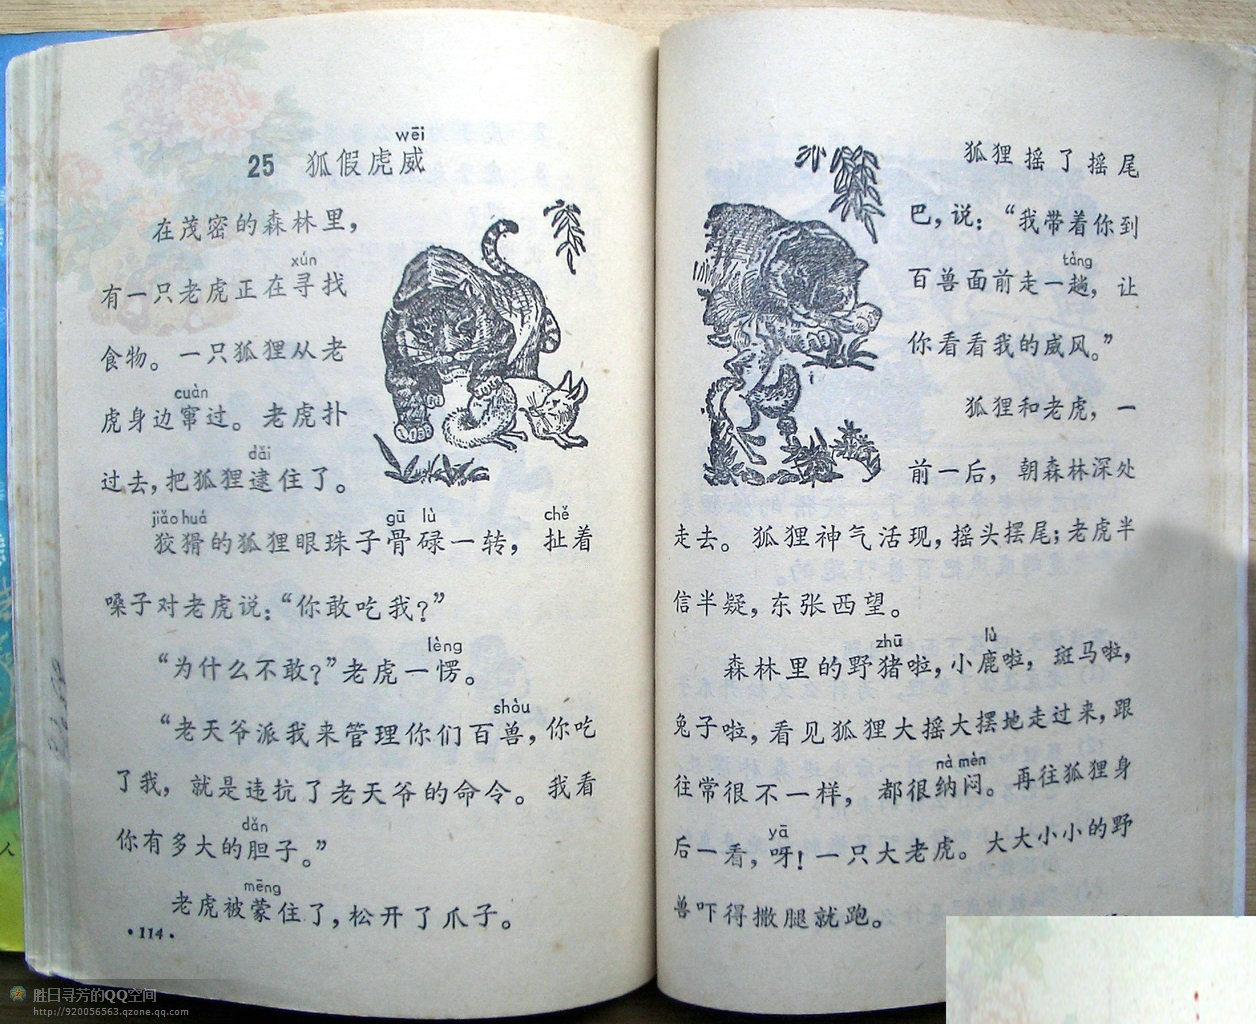 wēi
25 狐假虎威
在茂密的森林里，
xún
有一只老虎正在寻找
食物。一只狐狸从老
cuàn
虎身边窜过。老虎扑
dǎi
过去，把狐狸逮住了。
jiǎo huá gū lù chě
狡猾的狐狸眼珠子骨碌一转，扯着
嗓子对老虎说：“你敢吃我？”
lèng
“为什么不敢？”老虎一愣。
shòu
“老天爷派我来管理你们百兽，你吃
了我，就是违抗了老天爷的命令。我看
dǎn
你有多大的胆子。”
mēng
老虎被蒙住了，松开了爪子。
·114·
狐狸摇了摇尾
巴，说：“我带着你到
tàng
百兽面前走一趟，让
你看看我的威风。”
狐狸和老虎，一
前一后，朝森林深处
走去。狐狸神气活现，摇头摆尾；老虎半
信半疑，东张西望。
zhū lù
森林里的野猪啦，小鹿啦，斑马啦，
兔子啦，看见狐狸大摇大摆地走过来，跟
nà mèn
往常很不一样，都很纳闷。再往狐狸身
yā
后一看，呀！一只大老虎。大大小小的野
兽吓得撒腿就跑。
胜日寻芳的QQ空间
http://920056563.qzone.qq.com
人